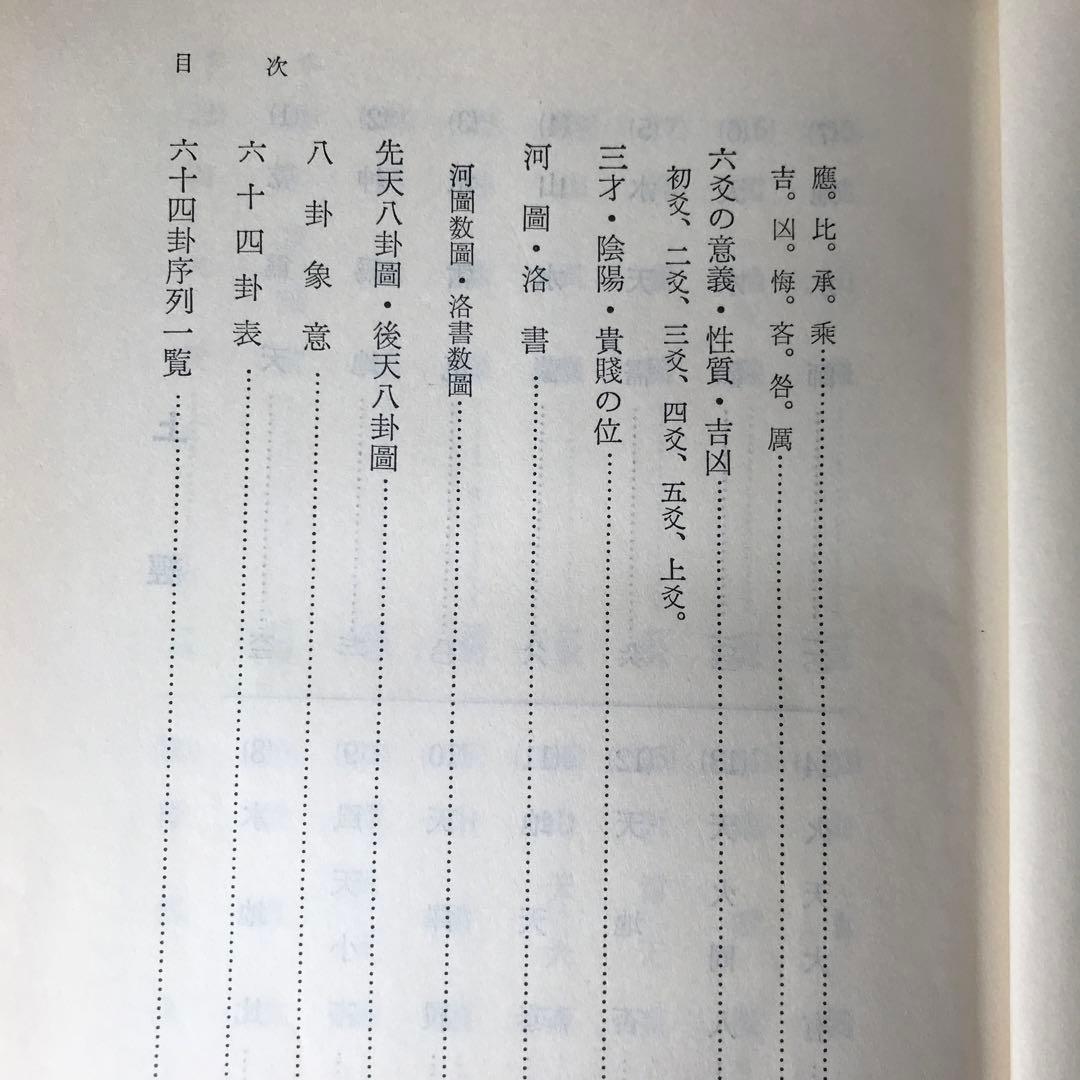 應。比。承。乘
吉。凶。悔。吝。咎。厲
六爻の意義・性質・吉凶
初爻、二爻、三爻、四爻、五爻、上爻。
三才・陰陽・貴賤の位
河圖・洛書
河圖数圖・洛書数圖
先天八卦圖・後天八卦圖
八卦象意
六十四卦表
六十四卦序列一覧
目次